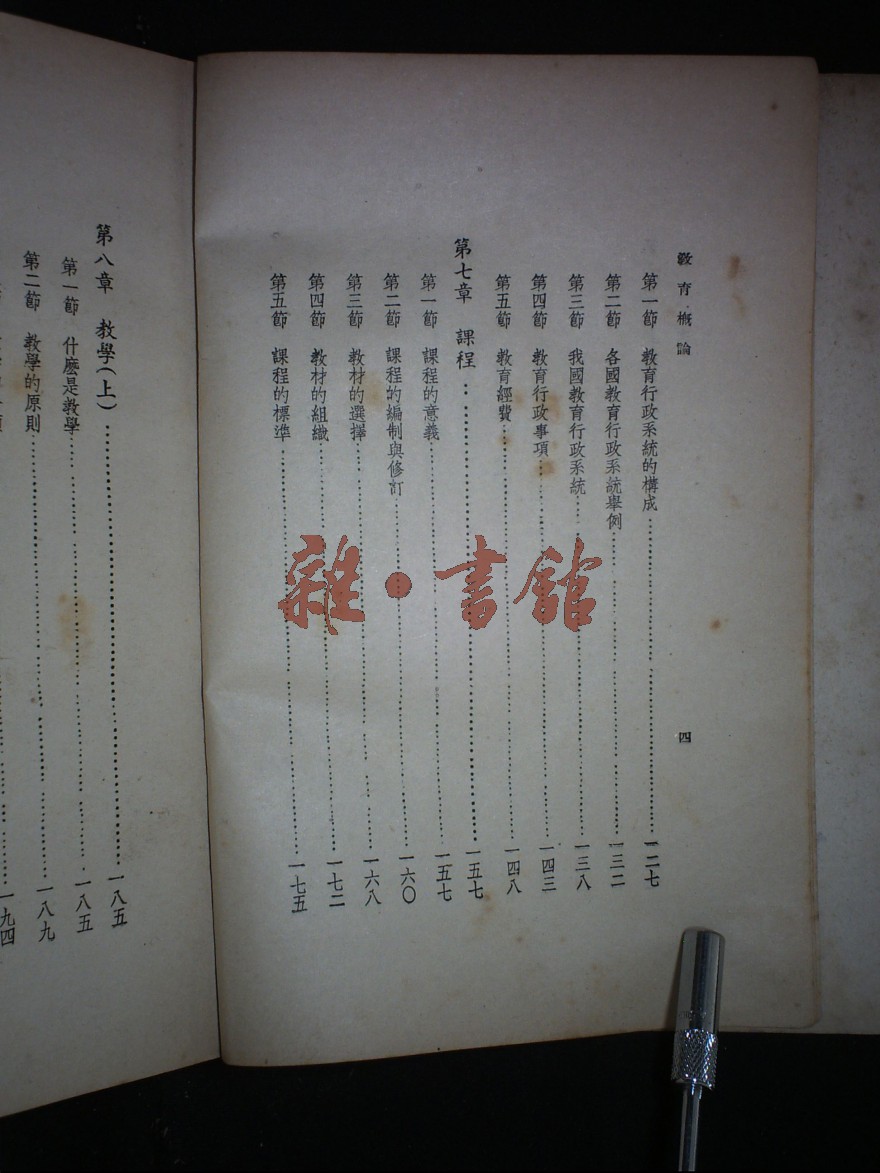 教育概論
四
第一節 教育行政系統的構成……一二七
第二節 各國教育行政系統舉例……一三二
第三節 我國教育行政系統……一三八
第四節 教育行政事項……一四三
第五節 教育經費……一四八
第七章 課程……一五七
第一節 課程的意義……一五七
第二節 課程的編制與修訂……一六〇
第三節 教材的選擇……一六八
第四節 教材的組織……一七二
第五節 課程的標準……一七五
第八章 教學(上)……一八五
第一節 什麼是教學……一八五
第二節 教學的原則……一八九
一九四
雜·書館